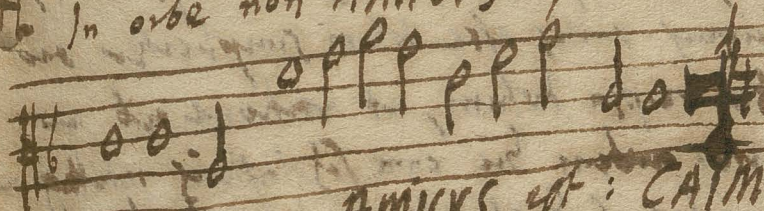 In orbe non
amicus est : CAIM